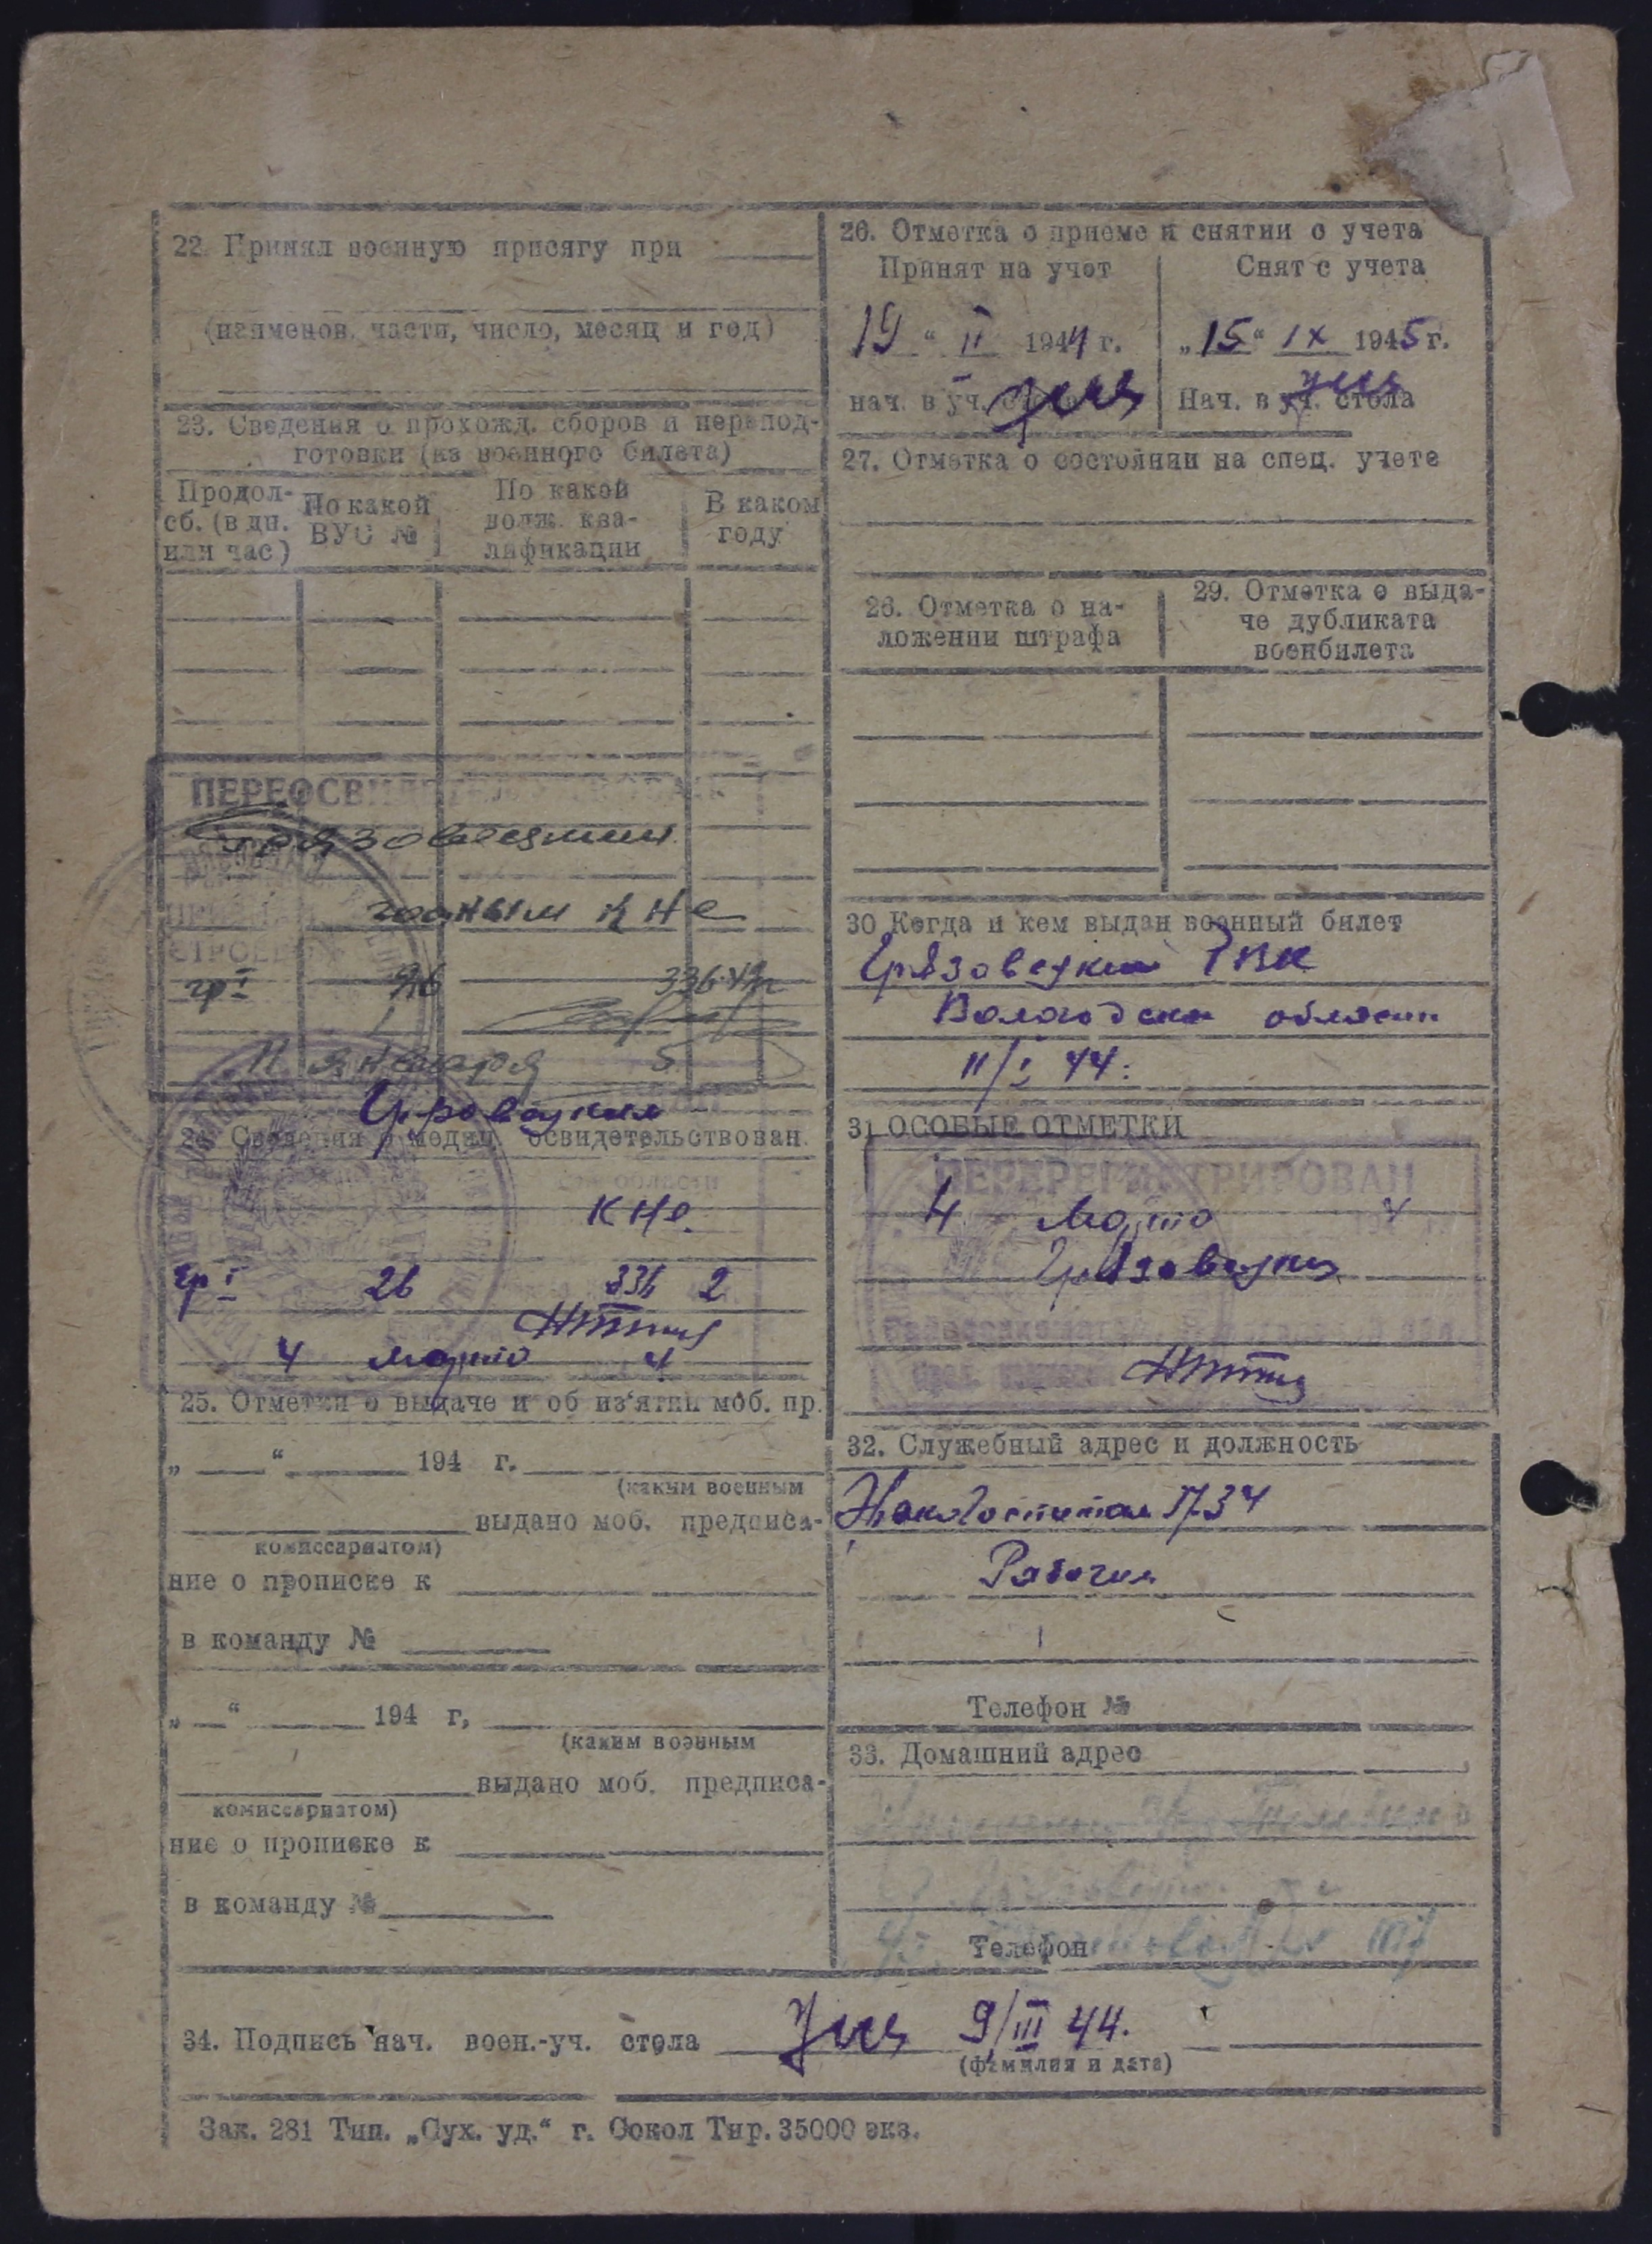 22. Принял военную присягу при
(наименов. части, число, месяц и год)
23. Сведения о прохожд. сборов и перепод-
готовки (из военного билета)
Продол-
сб. (в дн.
или час)
По какой
ВУС №
По какой
долж. ква-
лификации
В каком
году
ПЕРЕОСВИ
Грязовецким
годным к не
гр I 336
11 января 5
Грязовецким
24. Сведения о медиц. освидетельствован.
к не.
гр I 2б 336 2
4 марта 4
25. Отметки о выдаче и об из‘ятии моб. пр.
„ “ 194 г.
(каким военным
выдано моб. предписа-
комиссариатом)
ние о прописке к
в команду №
„ “ 194 г,
(каким военным
выдано моб. предписа-
комиссариатом)
ние о прописке к
в команду №
26. Отметка о приеме и снятии с учета
Принят на учет
19 “ II 1944 г.
нач. в уч. стола
Снят с учета
„15“ IX 1945 г.
Нач. в уч. стола
27. Отметка о состоянии на спец. учете
28. Отметка о на-
ложении штрафа
29. Отметка о выда-
че дубликата
военбилета
30 Когда и кем выдан военный билет
Грязовецким РВК
Вологодской области
11/I 44.
31 ОСОБЫЕ ОТМЕТКИ
ПЕРЕРЕГИСТРИРОВАН
4 Марта 194 4
Грязовецким
32. Служебный адрес и должность
Эвакогоспиталь 1734
Рабочий
Телефон №
33. Домашний адрес
Телефон
34. Подпись нач. воен.-уч. стола 9/III 44.
(фамилия и дата)
Зак. 281 Тип. „Сух. уд.“ г. Сокол Тир. 35000 экз.